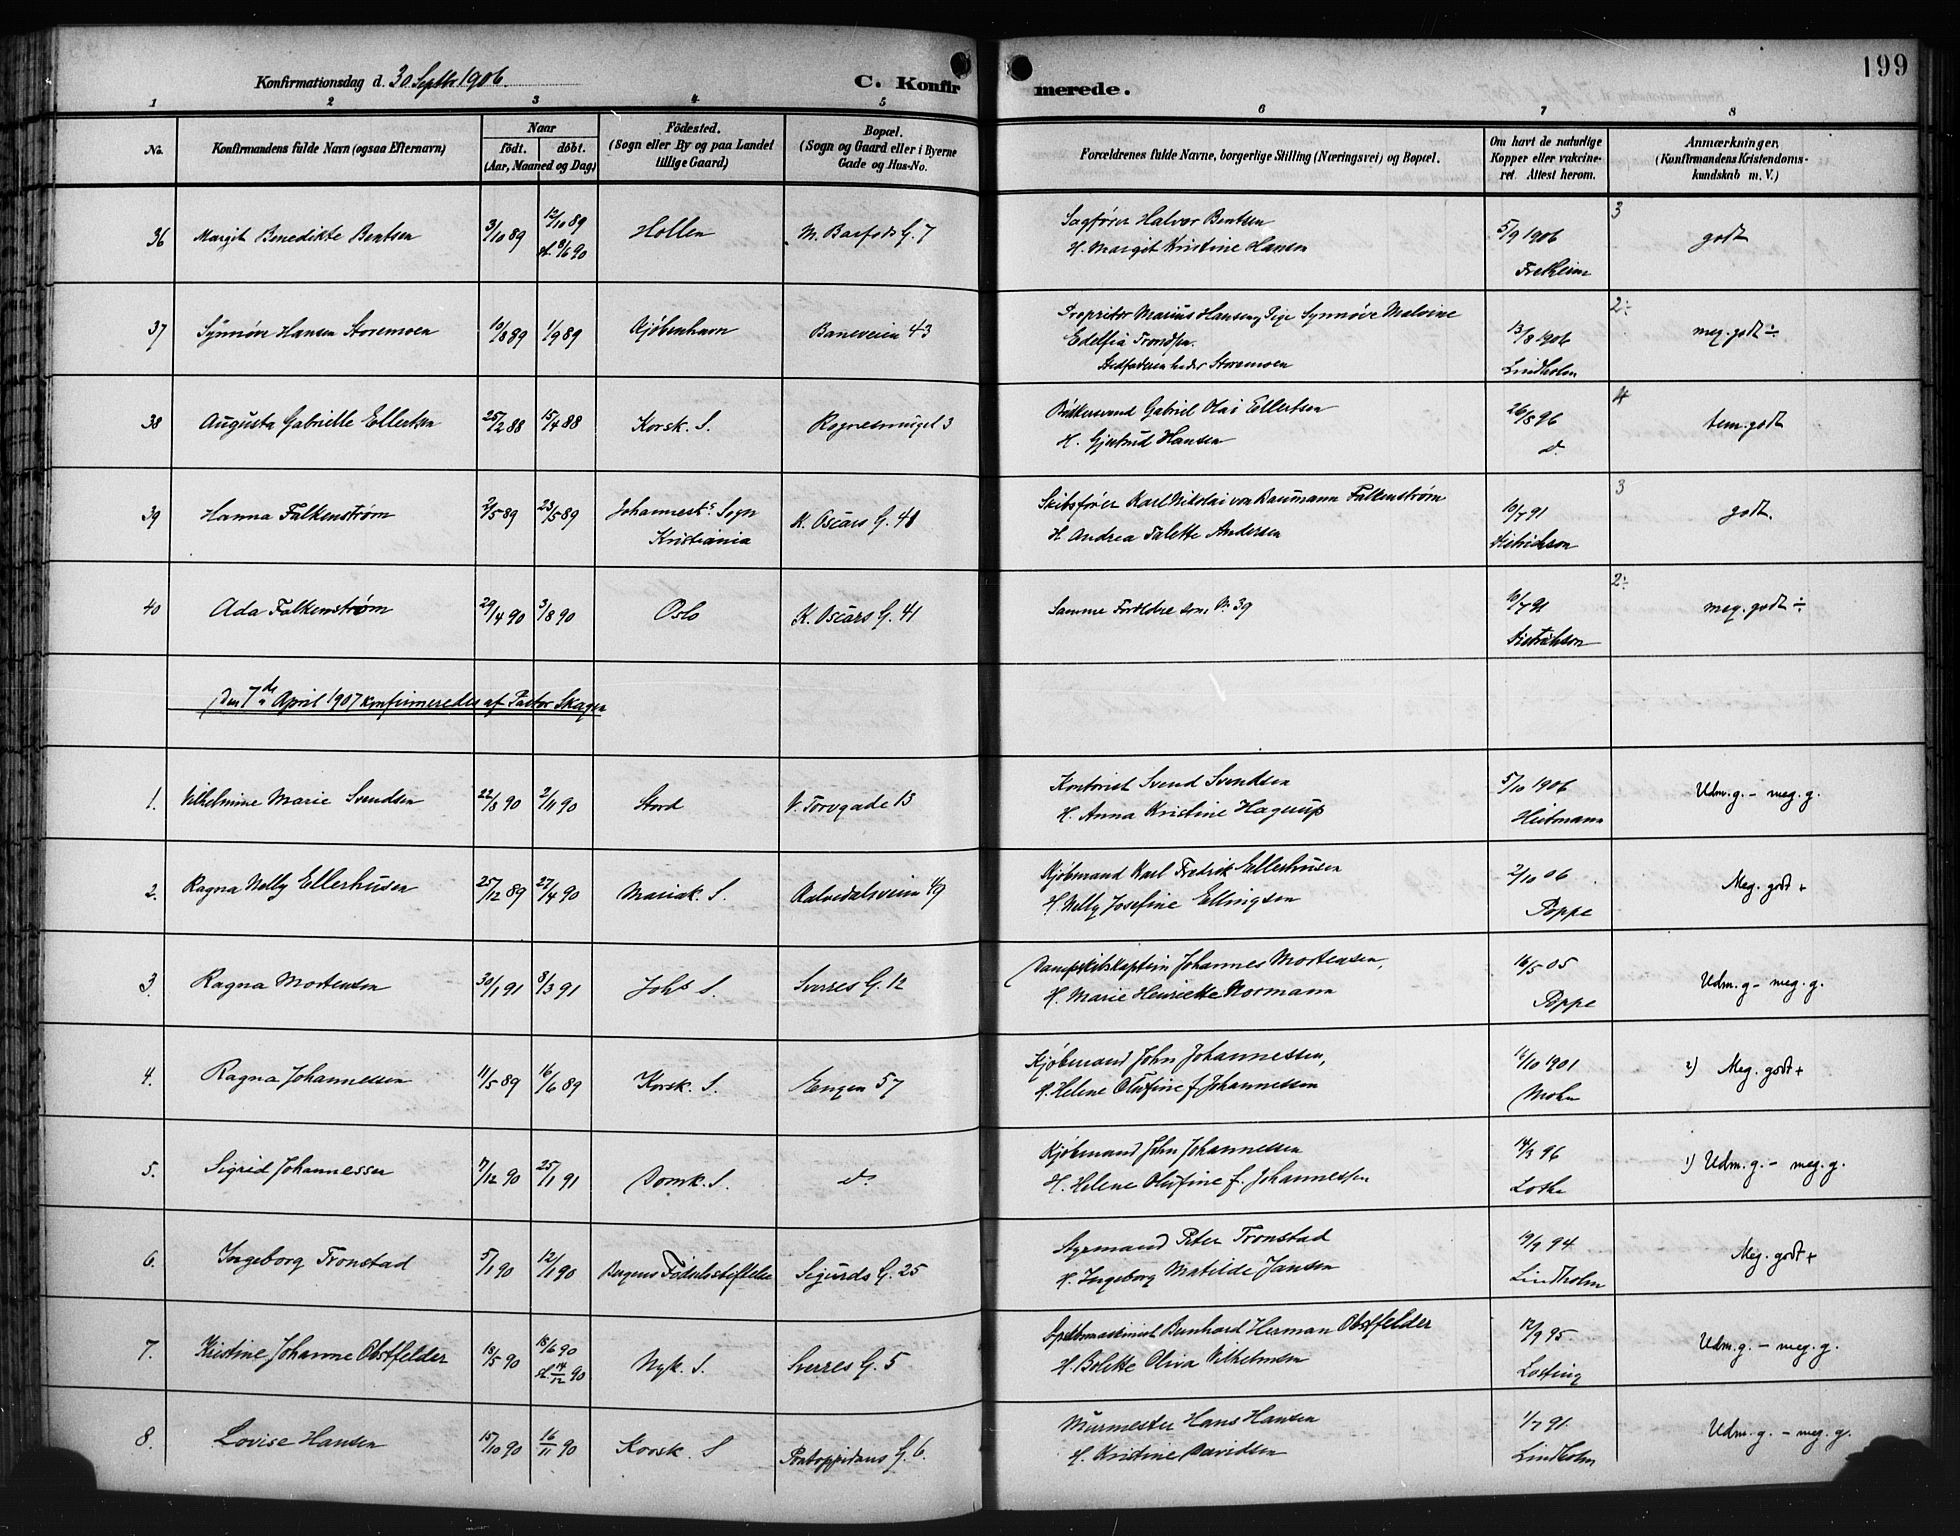 199
Konfirmationsdag d. 30 Septbr 1906.
C. Konfirmerede.
1 2 3 4 5 6 7 8
No.
Konfirmandens fulde Navn (ogsaa Efternavn)
Naar
født. døbt.
(Aar, Maaned og Dag)
Födested.
(Sogn eller By og paa Landet
tillige Gaard)
Bopæl.
(Sogn og Gaard eller i Byerne
Gade og Hus-No.
Forældrenes fulde Navne, borgerlige Stilling (Næringsvei) og Bopæl.
Om havt de naturlige
Kopper eller vakcine-
ret. Attest herom.
Anmærkninger,
(Konfirmandens Kristendoms-
kundskab m. V.)
36 Margit Benedikte Bentsen 3/10 89 12/10 89 Hollen M. Barfods G. 7 Sagfører Halvor Bentsen 5/9 1906 3 godt
st. 8/6 90 H. Margit Kristine Hansen Fretheim
37 Synnøve Hansen Storemoen 10/8 89 1/9 89 Kjøbenhavn Baneveien 43 Propritær Marius Hansen, Pige Synnøve Malvine 13/8 1906 2÷ meg. godt ÷
Edelfia Trondsen. Lindholm
Stedfaderen heder Storemoen
38 Augusta Gabrielle Ellertsen 25/2 88 15/4 88 Korsk. S. Rognesmuget 3 Gabriel Olai Ellertsen 26/8 96 4 tem. godt
H. Gjertrud Hansen d.
39 Hanna Falkenstrøm 2/5 89 23/5 89 Johannesk. Sogn K. Oscars G. 41 Skibsfører Karl Nikolai von Baumann Falkenstrøm 10/7 91 3 godt.
Kristiania H. Andrea Talette Andersen Dietrichson
40 Ada Falkenstrøm 29/4 90 3/8 90 Oslo K. Oscars G. 41 Samme Forældre som Nr 39 10/7 91 2÷ meg. godt ÷
Dietrichson
Den 7de April 1907 konfirmeredes af Pastor Skagen
1. Vilhelmine Marie Svendsen 22/8 90 2/11 90 Stord V. Torvgade 13 Kontorist Svend Svendsen 5/10 1906 Udm. g. - meg. g.
H. Anna Kristine Hagerup Heitmann
2. Ragna Nelly Ellerhusen 25/12 89 27/4 90 Mariak. S. Kalvedalsveien 49 Kjøbmand Karl Fredrik Ellerhusen 2/10 06 Meg. godt +
H. Nelly Josefine Ellingsen Poppe
3. Ragna Mortensen 30/1 91 8/3 91 Johs S. Sverres G. 12 Dampskibskaptein Johannes Mortensen, 16/5 05 Udm. g - meg. g.
H. Marie Henriette Normann Poppe
4. Ragna Johannessen 11/5 89 16/6 89 Korsk. S. Engen 57 Kjøbmand John Johannessen, 16/10 1901 2) Meg. godt +
H. Helene Olufine f. Johannessen Mohn
5. Sigrid Johannessen 7/12 90 25/1 91 Domk. S. d. Kjøbmand John Johannessen 14/3 96 1) Udm. g. - meg. g.
H. Helene Olufine f. Johannessen Lothe
6. Ingeborg Tronstad 5/1 90 12/1 90 Bergens Fødselsstiftelse Sigurds G. 25 Styrmand Peter Tronstad 19/9 94 Meg. godt +
H. Ingeborg Matilde Jansen Lindholm
7. Kristine Johanne Obstfelder 15/5 90 15/6 90 Nyk. S. Sverres G. 5 Bernhard Herman Obstfelder 12/9 95 Udm. g. - meg. g.
st. 14/12 90 H. Bolette Oliva Vilhelmsen Losting
8. Lovise Hansen 15/10 90 16/11 90 Korsk. S Pontoppidans G. 6. Murmester Hans Hansen 1/7 91 Udm. g. - meg. g.
H. Kristine Davidsen Lindholm